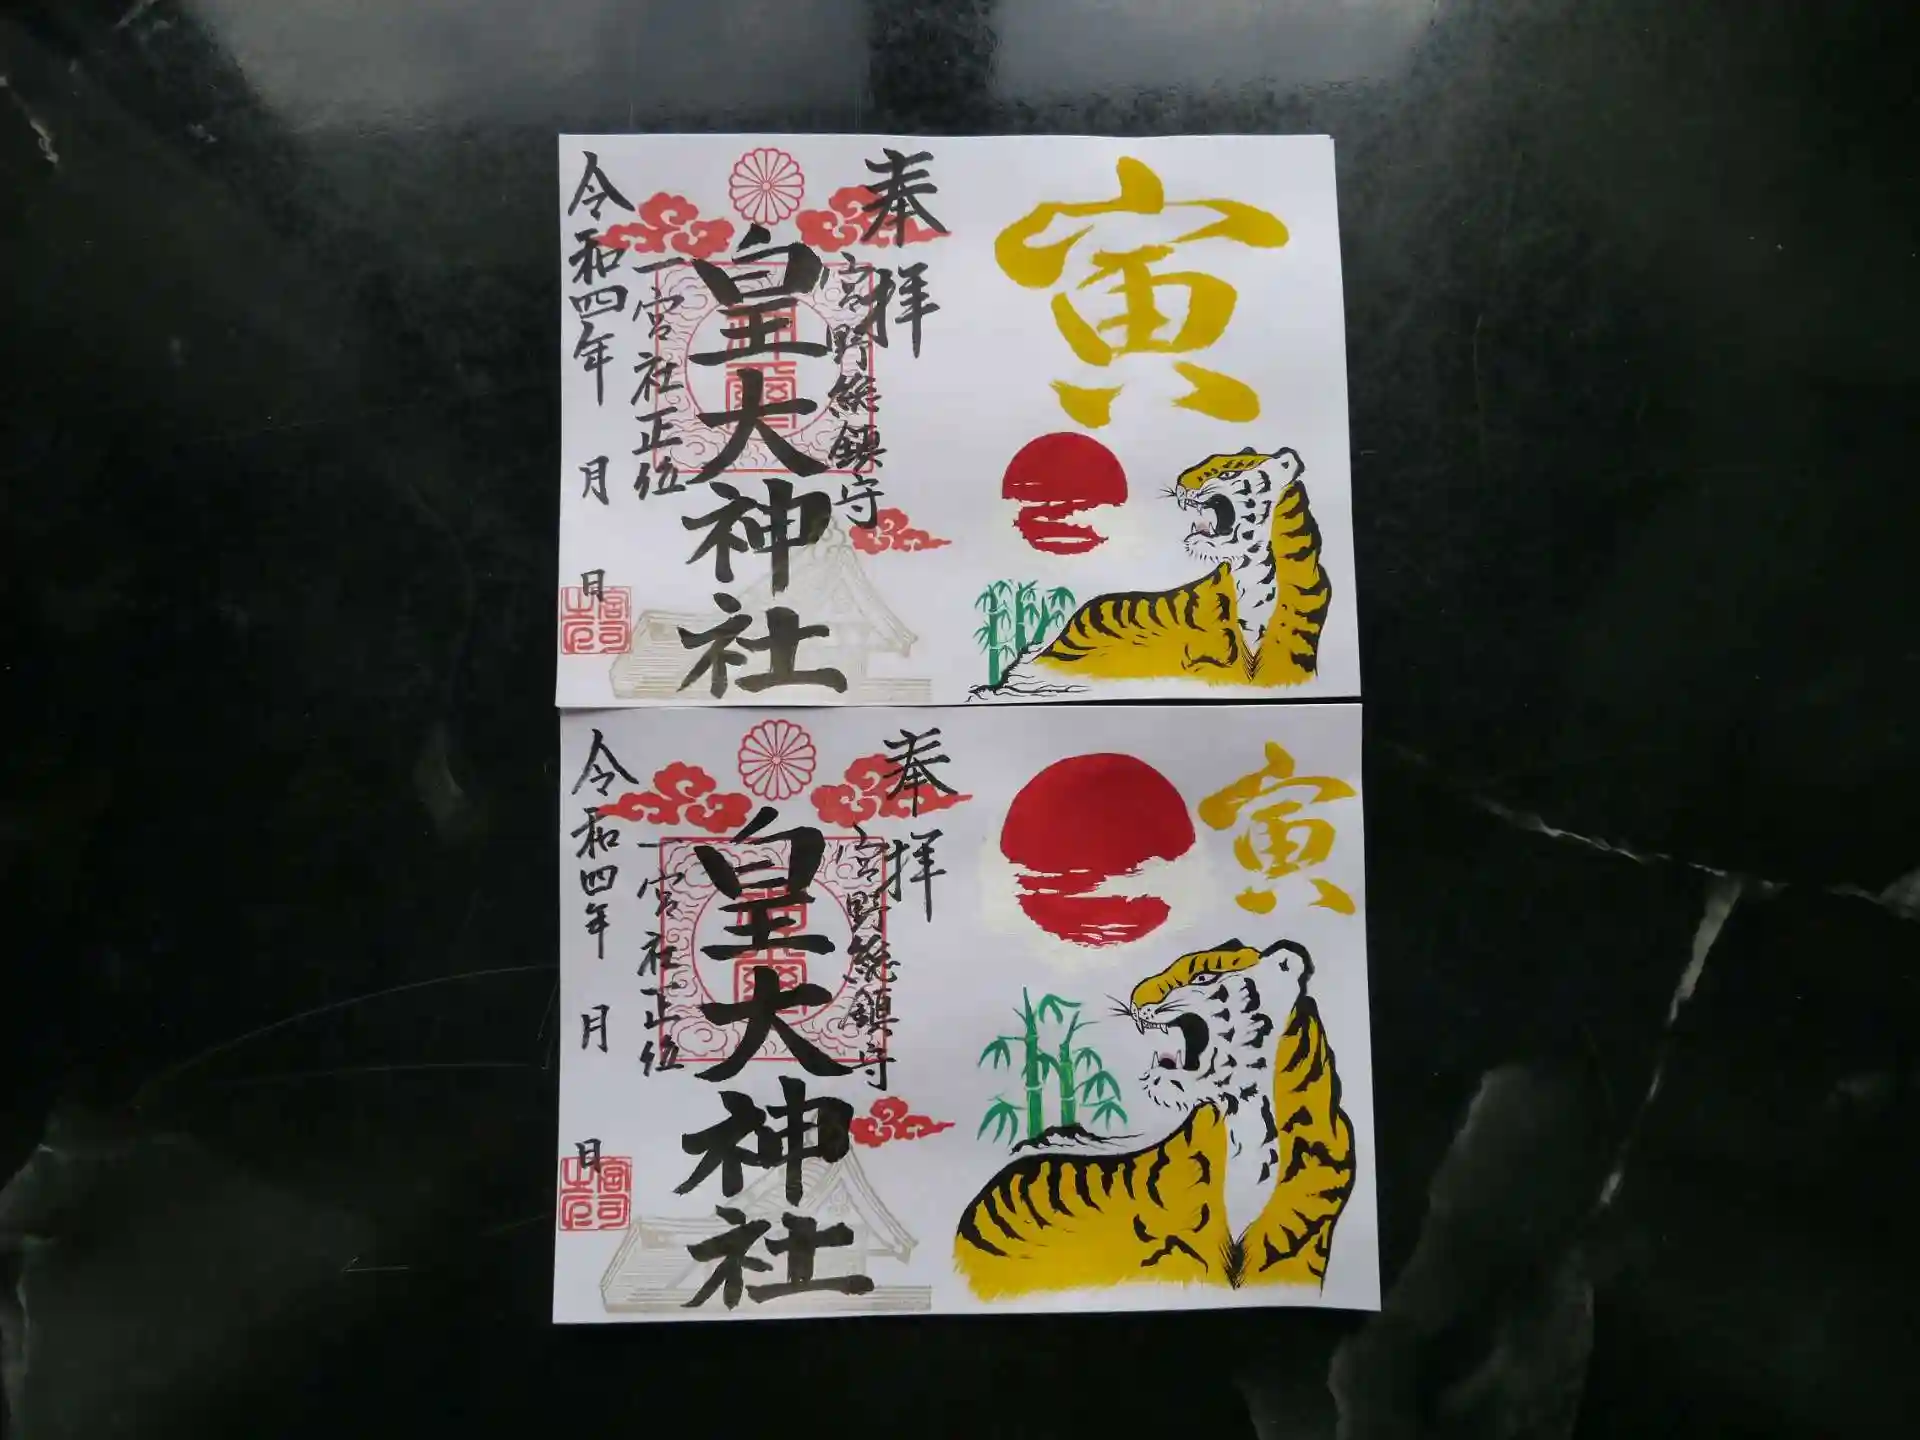 寅
奉拝
宮野総鎮守
皇大神社
一宮社正位
令和四年 月 日
寅
奉拝
宮野総鎮守
皇大神社
一宮社正位
令和四年 月 日